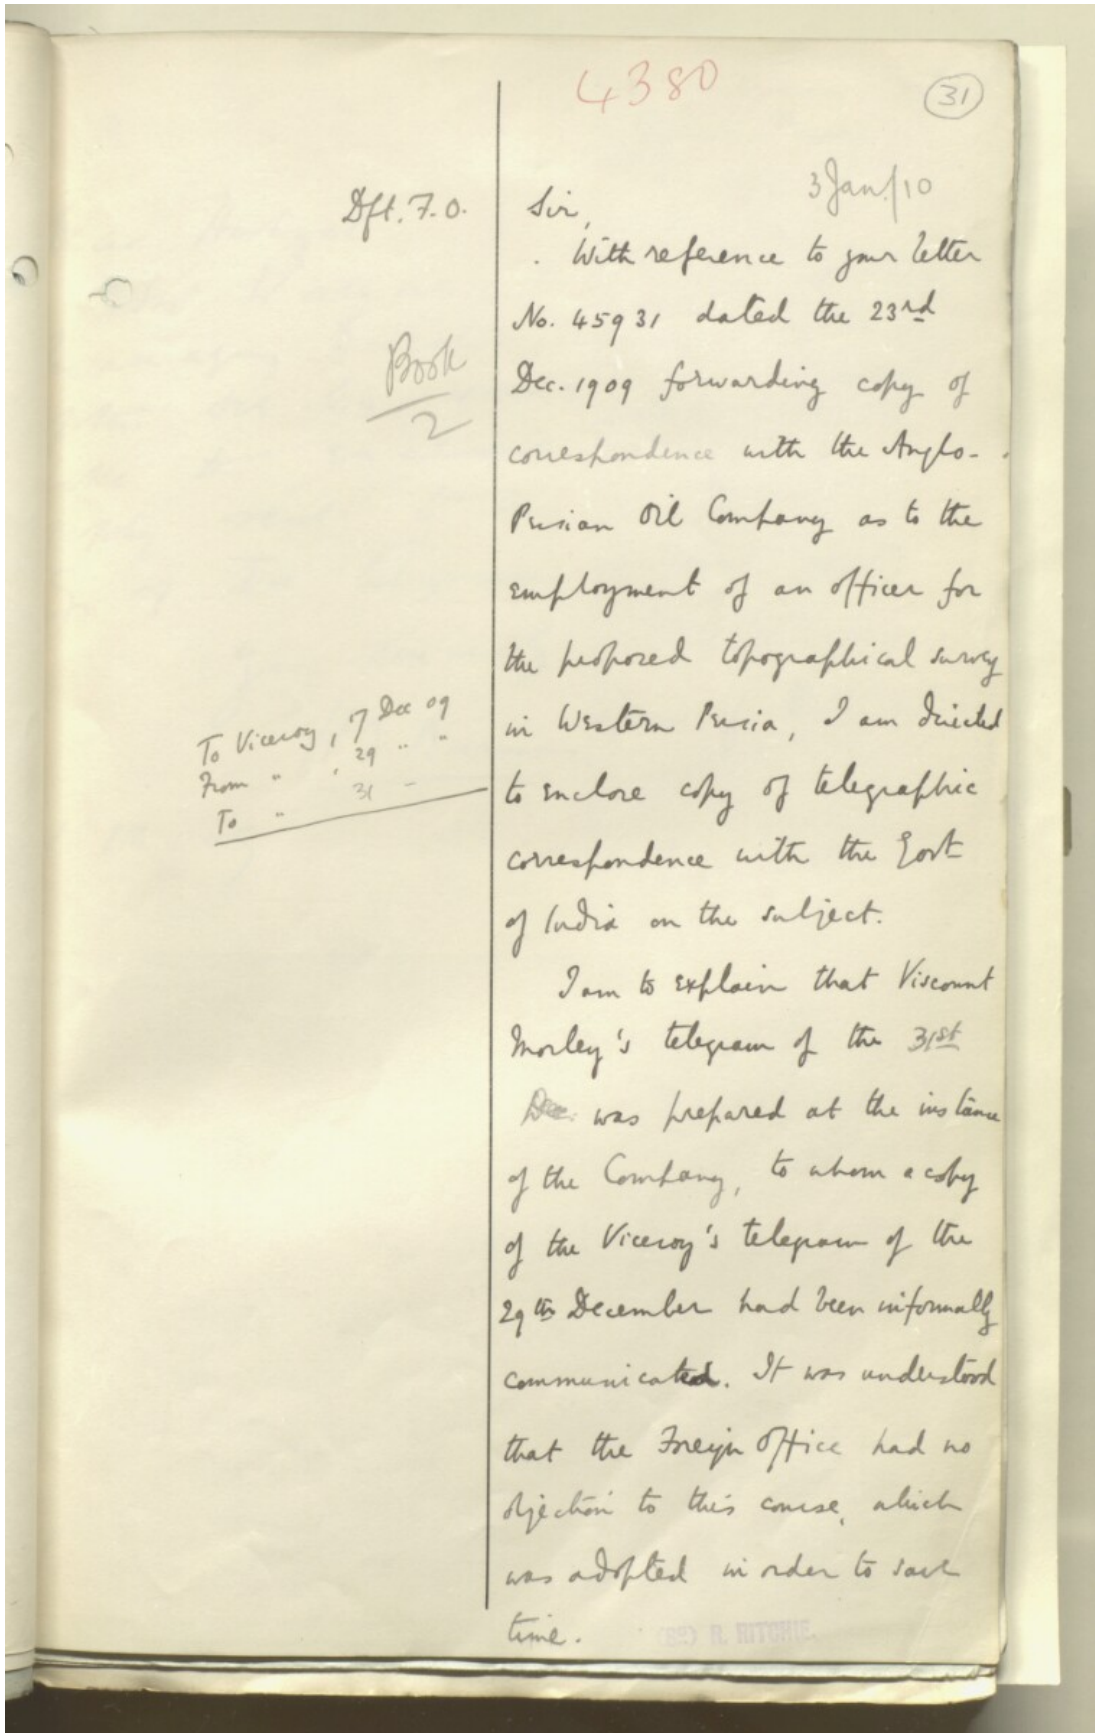 4380
31
3 Jan./10
Dft. F.O.
Sir,
With reference to your letter
No. 45931 dated the 23rd
Book
2
Dec. 1909 forwarding copy of
correspondence with the Anglo-
Persian Oil Company as to the
employment of an officer for
the proposed topographical survey
To Viceroy, 17 Dec 09
From " ' 29 " "
To " 31 –
in Western Persia, I am directed
to enclose copy of telegraphic
correspondence with the Govt
of India on the subject.
I am to explain that Viscount
Morley's telegram of the 31st
Dec. was prepared at the instance
of the Company, to whom a copy
of the Viceroy's telegram of the
29th December had been informally
communicated. It was understood
that the Foreign Office had no
objection to this course, which
was adopted in order to save
time.
(Sd) R. RITCHIE.